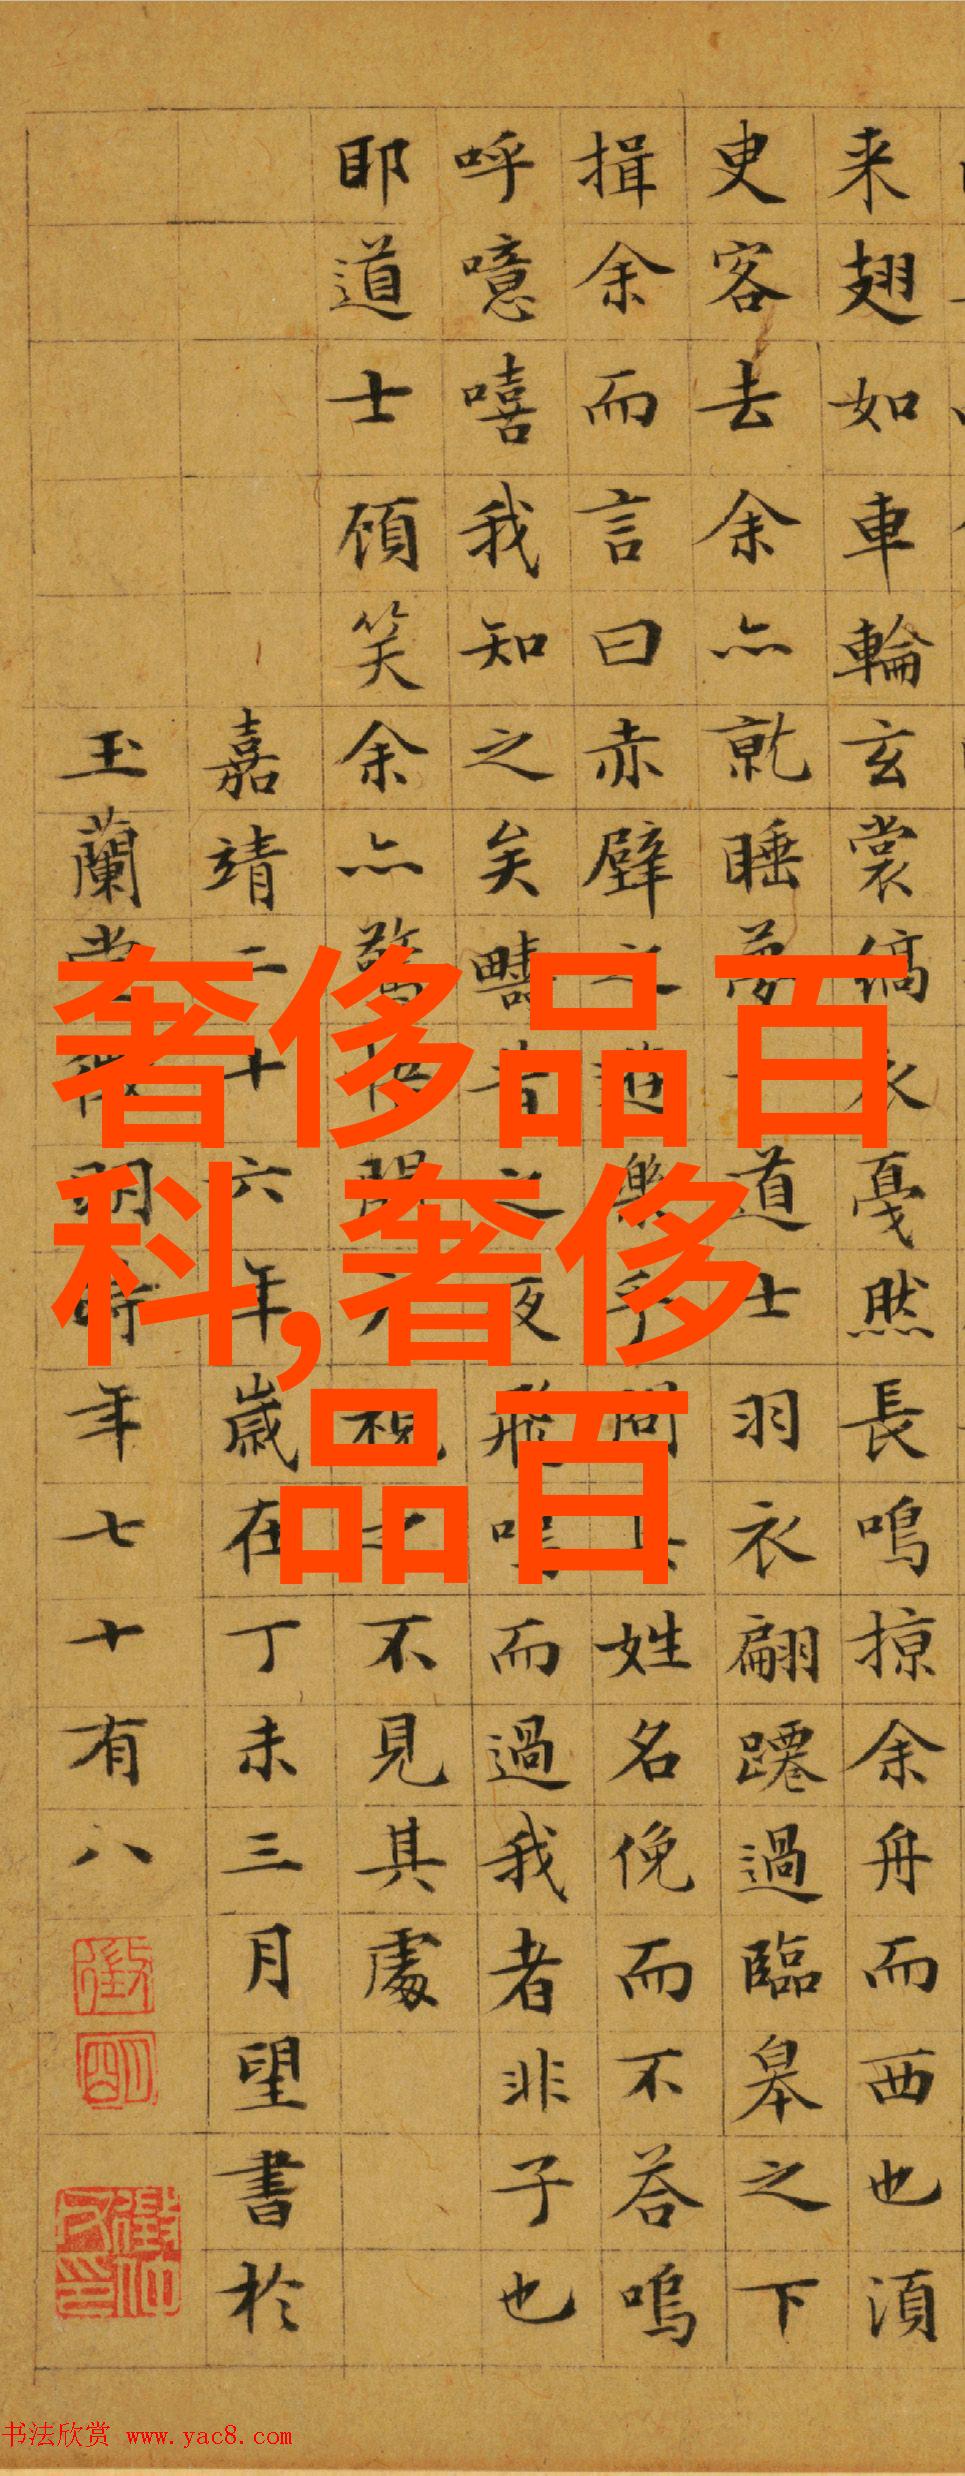 来翅如車輪玄裳縞衣戛然長鳴掠余舟而西也湏
臾客去余亦就睡夢一道士羽衣翩躚過臨皋之下
揖余而言曰赤壁之遊樂乎問其姓名俛而不荅嗚
呼噫嘻我知之矣疇昔之夜飛鳴而過我者非子也
耶道士顧笑余亦驚悟開户視之不見其處
嘉靖二十六年歲在丁未三月望書於
玉蘭堂徵明時年七十有八
奢侈品百
科,奢侈
品百
书法欣赏 www.yac8.com